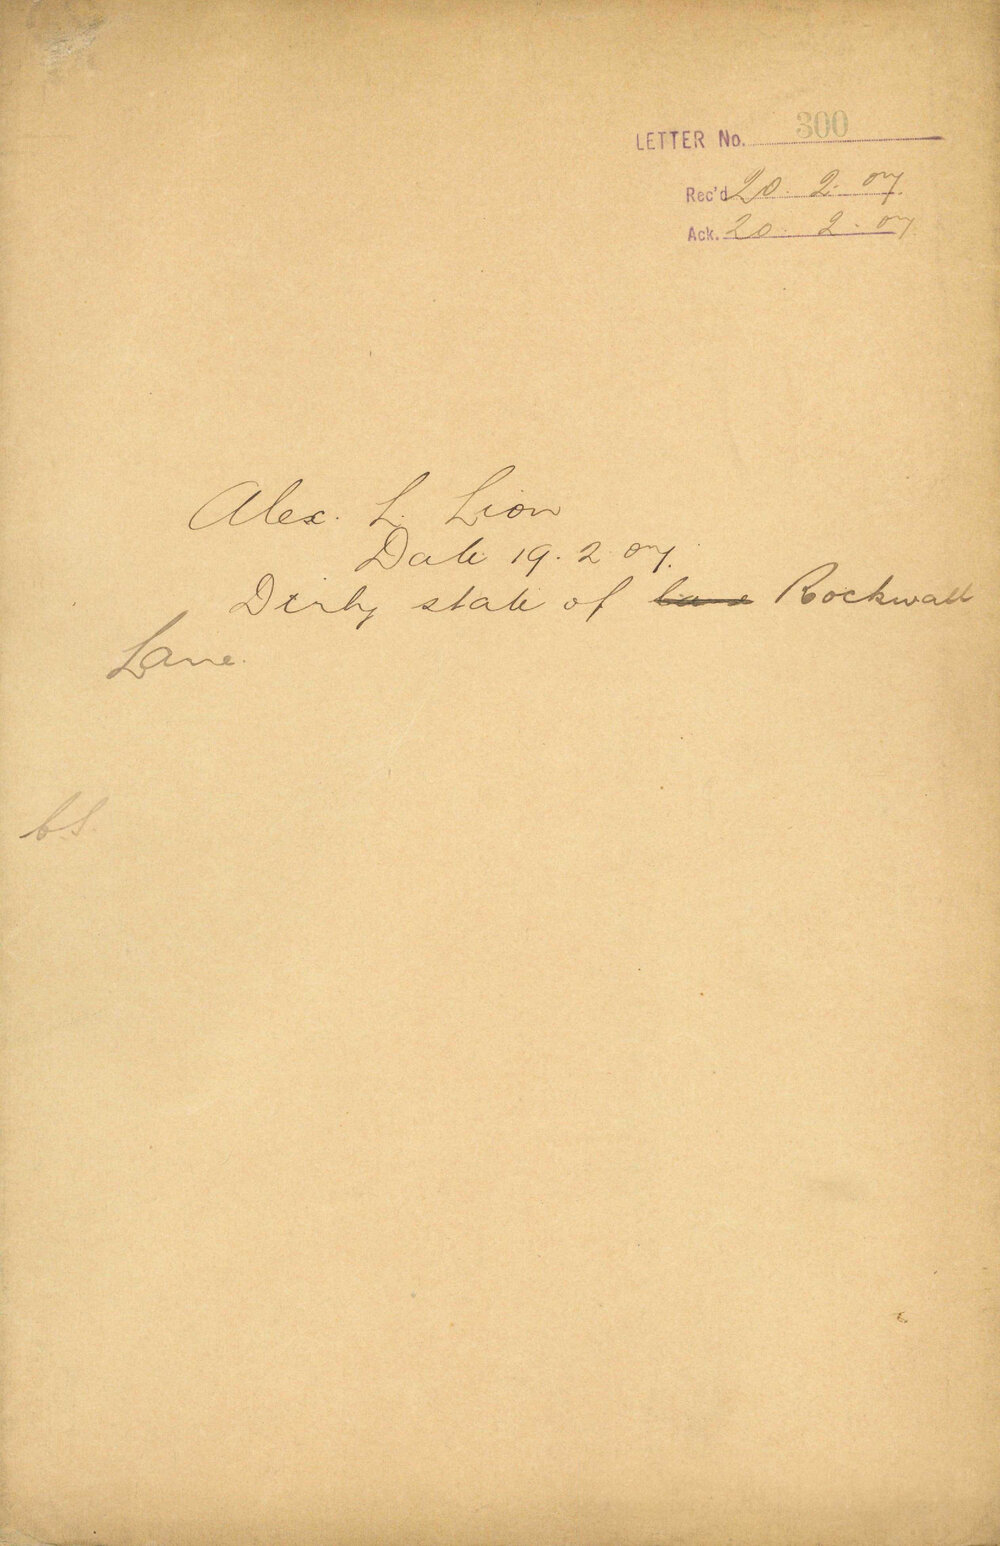 LETTER No. 300
Rec'd 20. 2. 07.
Ack. 20. 2. 07
Alex. L. Lion
Date 19. 2 07.
Dirty state of lane Rockwall
Lane.